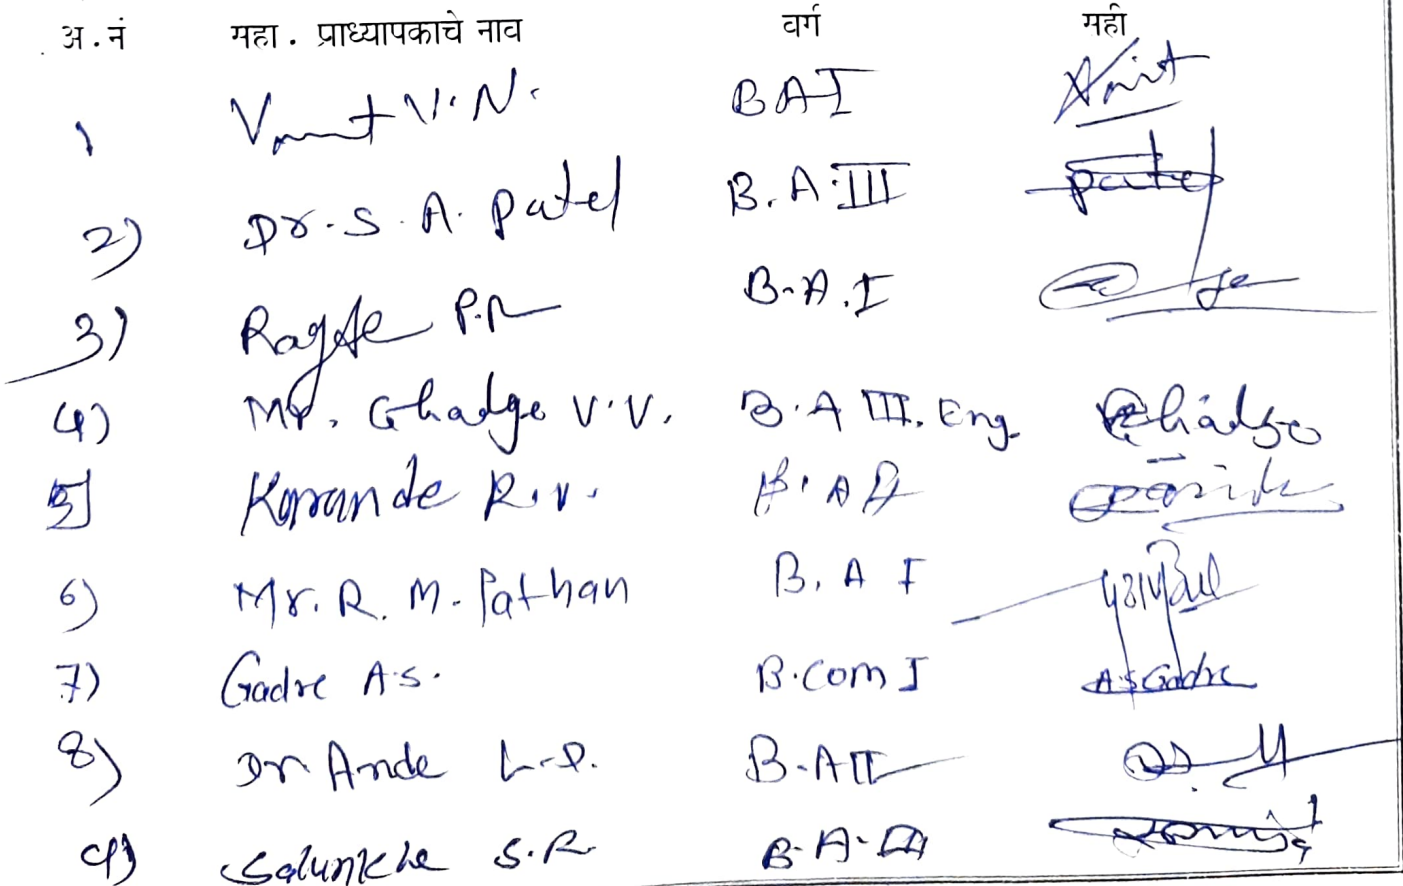 अ.नं महा. प्राध्यापकाचे नाव वर्ग सही
१ V.N. B A I
2) Dr. S. A. Patel B. A. III Patel
3) P.R B.A. I
4) Mr. Ghadge V.V. B.A III. Eng. Ghadge
5] Karande R.V.
6) Mr. R. M. Pathan B. A I
7) Gadre A.S. B.Com I A.S.Gadre
8) Dr. Ande L.D. B.A II
९) Salunkhe S.R. B.A. III